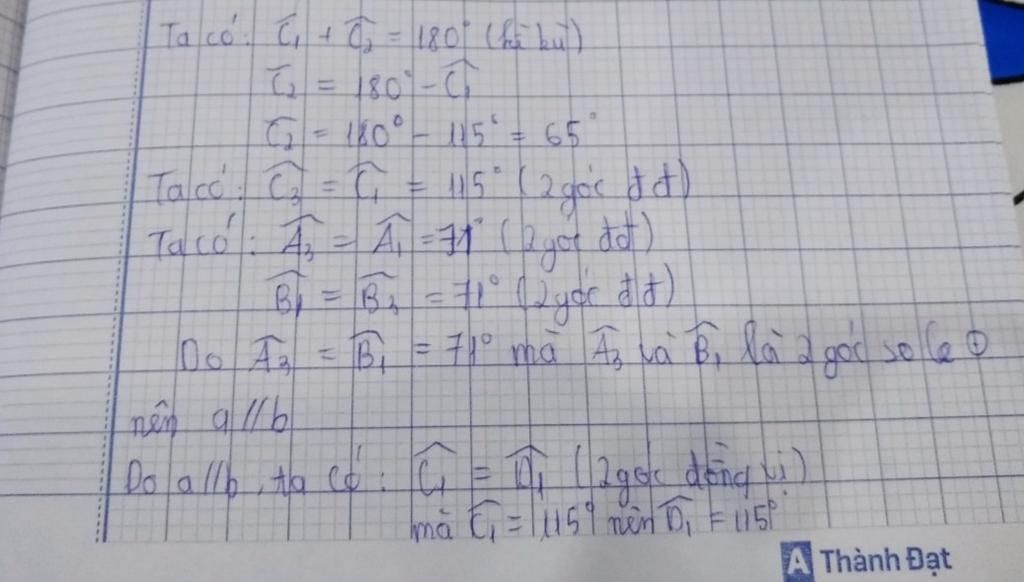 Ta có: Ĉ₁ + Ĉ₂ = 180° (kề bù)
Ĉ₂ = 180° - Ĉ₁
Ĉ₂ = 180° - 115° = 65°
Ta có: Ĉ₃ = Ĉ₁ = 115° (2 góc đđ)
Ta có: Â₃ = Â₁ = 71° (2 góc đđ)
B̂₁ = B̂₃ = 71° (2 góc đđ)
Do Â₃ = B̂₁ = 71° mà Â₃ và B̂₁ là 2 góc so le
nên a//b
Do a//b, ta có: Ĉ₁ = D̂₁ (2 góc đồng vị)
mà Ĉ₁ = 115° nên D̂₁ = 115°
A Thành Đạt